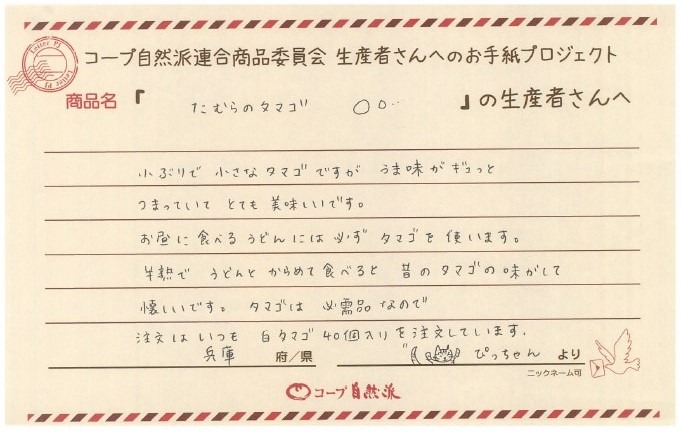 Letter Pj
Letter Pj
コープ自然派連合商品委員会 生産者さんへのお手紙プロジェクト
商品名『 たむらのタマゴ 』の生産者さんへ
小ぶりで 小さなタマゴですが うま味がギュっと
つまっていて とても 美味いいです。
お昼に食べるうどんには必ず タマゴを使います。
半熟で うどんと からめて食べると 昔のタマゴの味がして
懐しいです。 タマゴは 必需品なので
注文はいつも 白タマゴ40個入りを注文しています.
兵庫 府/県 ぴっちゃん より
ニックネーム可
コープ自然派